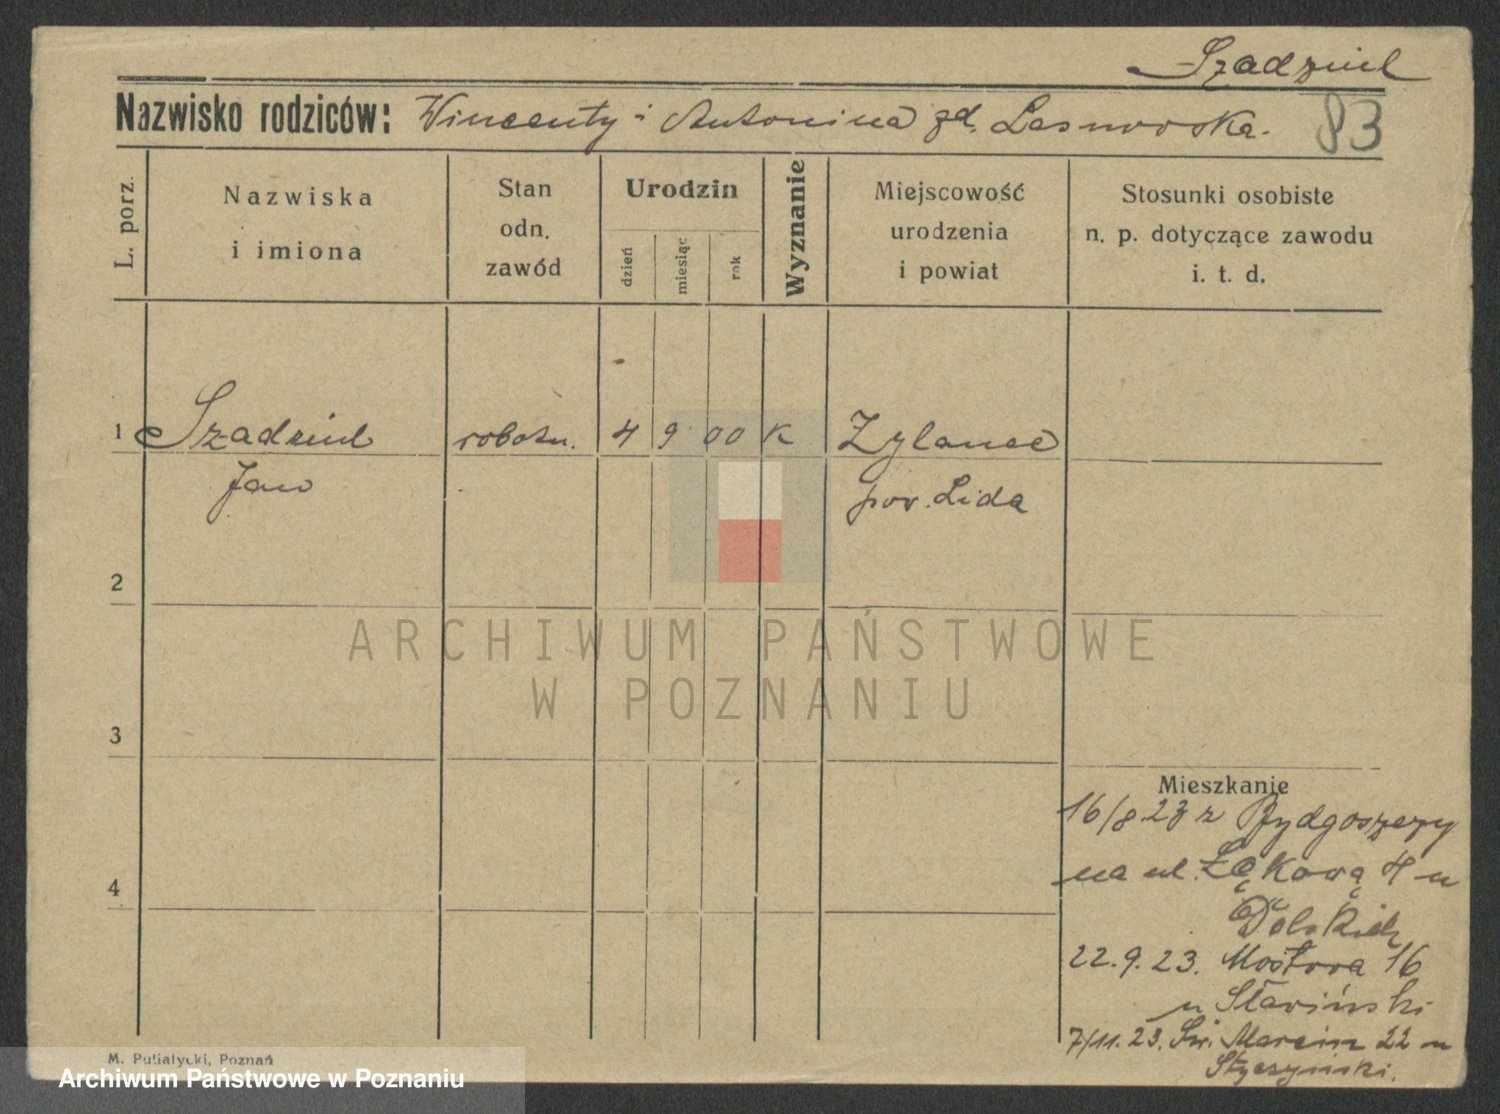 Szadziul
Nazwisko rodziców: Wincenty i Antonina zd. Lasnowska.
83
L. porz.
Nazwiska
i imiona
Stan
odn.
zawód
Urodzin
dzień
miesiąc
rok
Wyznanie
Miejscowość
urodzenia
i powiat
Stosunki osobiste
n. p. dotyczące zawodu
i. t. d.
1 Szadziul robotn. 4 9 00 K Zylance
Jan pow. Lida
2
ARCHIWUM PAŃSTWOWE
W POZNANIU
3
Mieszkanie
16/8 23 z Bydgoszczy
na ul. Łąkową 4 u
4
22.9.23. Mostowa 16
u Sławiński
7/11.23. Św. Marcin 22 u
Styczyński.
M. Putiatycki, Poznań
Archiwum Państwowe w Poznaniu